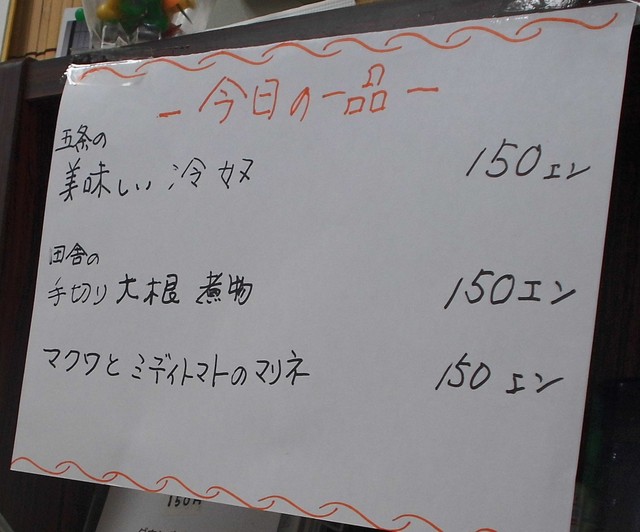 －今日の一品－
五条の
美味しい冷奴 150エン
田舎の
手切り大根煮物 150エン
マクワとミディトマトのマリネ 150エン
150円